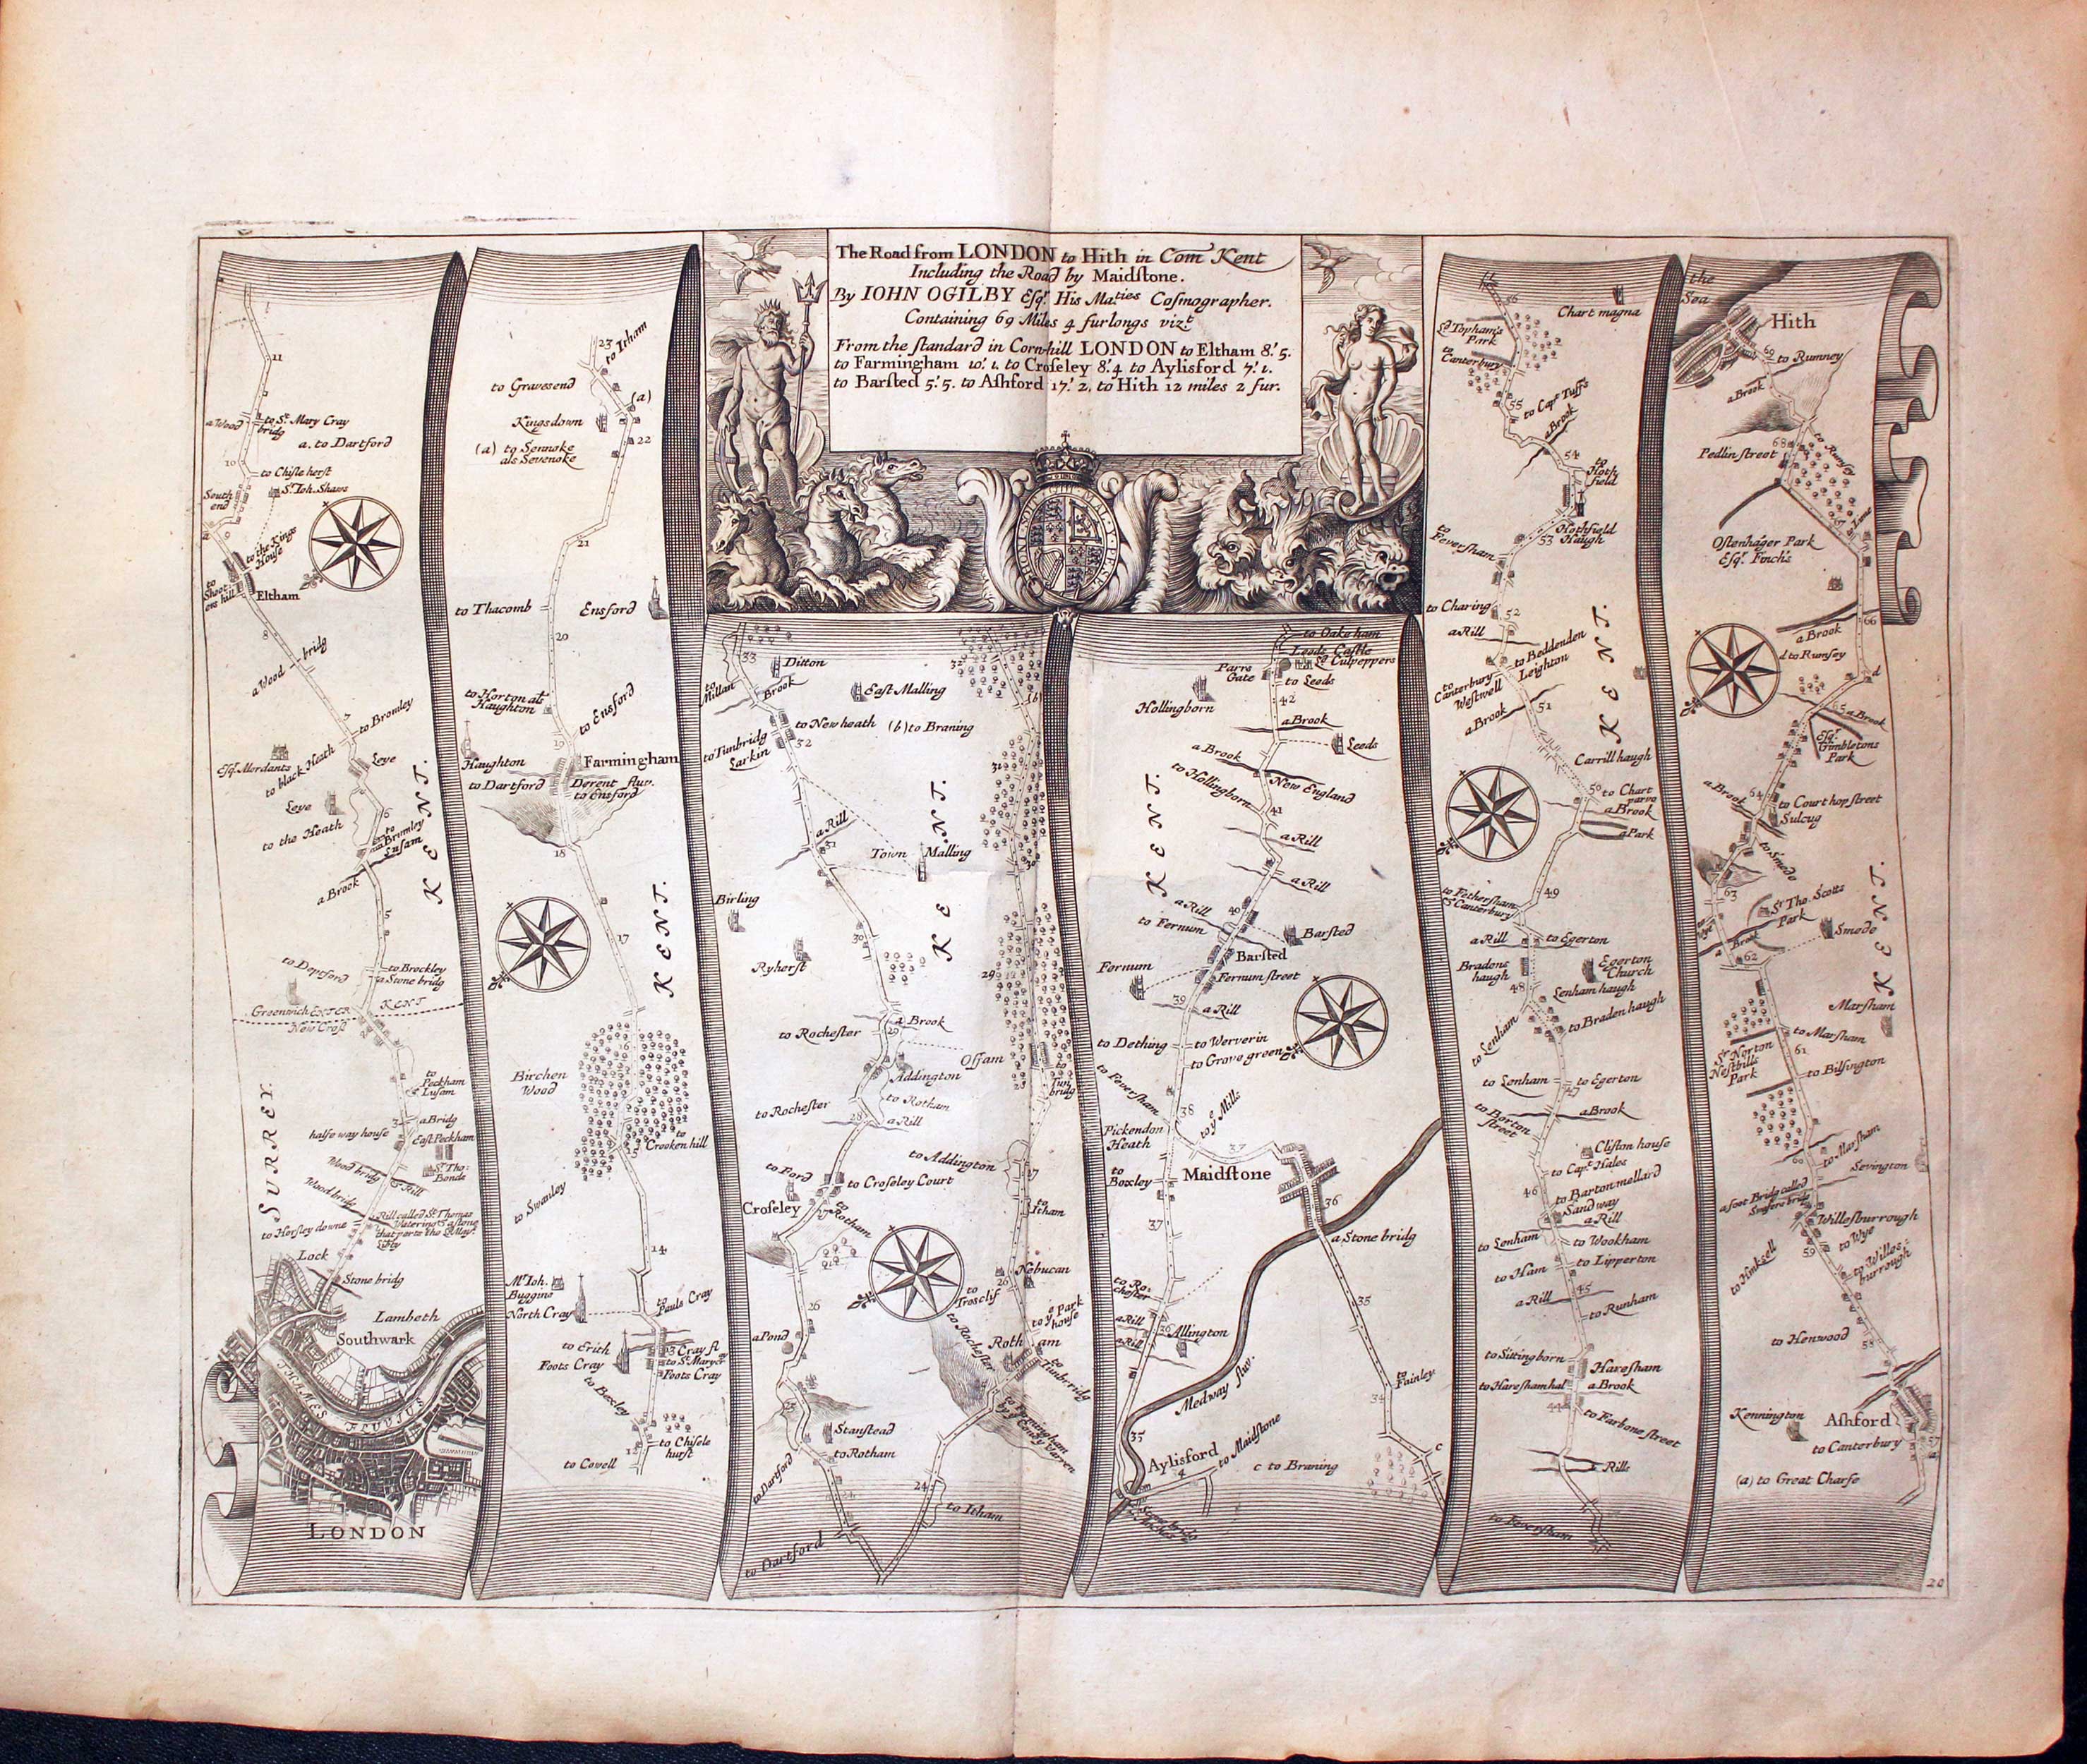 The Road from LONDON to Hith in Com Kent
Including the Road by Maidſtone.
By IOHN OGILBY Eſqr. His Maties Coſmographer.
Containing 69 Miles 4 furlongs vizt.
From the ſtandard in Cornhill LONDON to Eltham 8'. 5.
to Farmingham 10'. 1. to Croſeley 8'. 4 to Ayliſford 7'. 1.
to Barſted 5'. 5. to Aſhford 17'. 2. to Hith 12 miles 2 fur.
11
a Wood bridg
to St. Mary Cray
a. to Dartford
10
to Chiſleherſt
Sr. Ioh. Shaws
South end
to the Kings Houſe
to Shooters hill
Eltham
8
a Wood bridg
7
to Bromley
Eſqr. Mordants
to black Heath
Leye
Leye
6
to the Heath
to Bromley
Luſam
a Brook
5
KENT.
to Deptford
to Brockley
a Stone bridg
Greenwich
ENTER KENT
New Croſs
to Peckham
Luſam
3
a Bridg
halfe way house
East Peckham
Sr. Tho: Bonds
Wood bridg
a Rill
Wood bridg
Rill called St. Thomas
Watering & a ſtone
to Horſey downe
Lock
Stone bridg
SURREY.
Lambeth
Southwark
THAMES FLUVIUS
LONDON
23
to Itham
to Gravesend
(a)
Kingsdown
22
(a) to Sennoke
als Sevenoke
21
to Thacomb
Ensford
20
to Horton als
Haughton
to Ensford
19
Haughton
Farmingham
to Dartford
Derent fluv.
to Ensford
18
17
KENT.
16
Birchen
Wood
15
to Crookenhill
to Swanley
14
Mr. Ioh. Buggins
to Pauls Cray
North Cray
to Erith
13
Cray fl
Foots Cray
to St. Marys
Foots Cray
to Bexley
12
to Chiſlehurſt
to Cowell
33
Ditton
to Millan
Brook
East Malling
to New heath
(b) to Braning
to Tunbridg
Larkin
32
a Rill
31
Town Malling
Birling
30
KENT.
Ryherſt
a Brook
29
to Rocheſter
Offam
Addington
to Rocheſter
to Rotham
28
a Rill
to Ford
to Croſeley Court
Croſeley
27
to Rotham
26
a Pond
25
Stanſtead
to Rotham
to Dartford
24
to Dartford
32
(b)
31
30
29
to Tunbridg
to Addington
27
to Itham
Nebucan
26
to Trosclif
to ye Park houſe
to Rocheſter
Rotham
to Tunbridg
24
to Itham
to Oakeham
Leeds Caſtle
Ld. Culpeppers
Parrs Gate
to Leeds
42
Hollingborn
a Brook
Leeds
a Brook
to Hollingborn
New England
41
a Rill
a Rill
a Rill
40
to Fernum
Barſted
Barſted
Fernum
Fernum ſtreet
39
a Rill
to Dething
to Werverin
to Grove green
to Feverſham
KENT.
38
to ye Mills
Pickendon
Heath
37
Maidſtone
to Boxley
36
37
a Stone bridg
to Rocheſter
a Rill
a Rill
36
Allington
35
Medway fluv.
34
to Fainley
35
Ayliſford
to Maidſtone
c to Braning
c
56
Chart magna
Ld. Topham's
Park
to Canterbury
55
to Capt. Tuffs
a Brook
54
to Hothfield
to Feverſham
53
Hothfield
Haugh
to Charing
52
a Rill
to Beddenden
Leighton
to Canterbury
Weſtwell
51
a Brook
KENT.
Carrill haugh
50
to Chart parva
a Brook
a Park
49
to Fetherſham
& Canterbury
a Rill
to Egerton
Bradens
haugh
Egerton
Church
48
Lenham haugh
to Braden haugh
to Lenham
to Lenham
47
to Egerton
to Borton
ſtreet
a Brook
Cliſton houſe
to Capt. Hales
46
to Barton mellard
Sandway
a Rill
to Lenham
to Wookham
to Ham
to Lipperton
a Rill
45
to Runham
to Sittingborn
Hareſham
to Hareſham hal
a Brook
44
to Farbone ſtreet
Rills
to Feverſham
the
Sea
Hith
69
to Rumney
a Brook
68
Pedlin ſtreet
to Rumſey
67
Lime
Oſtenhager Park
Eſqr. Finch's
66
a Brook
d to Rumſey
d
65
a Brook
Eſqr. Gimbletons
Park
a Brook
64
to Court hop ſtreet
Sulcug
to Smede
63
Sr. Tho. Scotts
Park
Brook
Smede
62
Marſham
to Marſham
Sr. Norton
Park
61
to Bilſington
KENT.
to Marſham
60
Sevington
a foot Bridg called
Willeſburrough
to Wye
59
to Willeſburrough
to Hinksell
to Henwood
58
Kennington
Aſhford
to Canterbury
57
(a) to Great Charſe
20